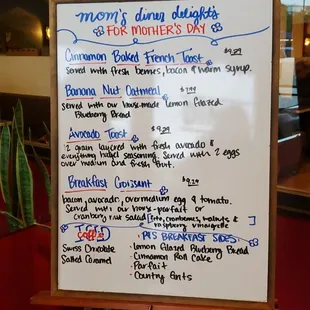 mom's diner delights
FOR MOTHER'S DAY
Cinnamon Baked French Toast $9.29
Served with fresh berries, bacon & warm syrup.
Banana Nut Oatmeal $7.99
Served with our housemade Lemon Glazed
Blueberry Bread
Avocado Toast $9.29
12 grain layered with fresh avocado &
everything bagel seasoning. Served with 2 eggs
over medium and fresh fruit.
Breakfast Croissant $9.29
bacon, avocado, overmedium egg & tomato.
Served with our house-parfait or
cranberry nut salad [feta, cranberries, walnuts &
raspberry vinaigrette]
ICED
Swiss Chocolate
Salted Caramel
BREAKFAST SIDES
• Lemon Glazed Blueberry Bread
• Cinnamon Roll Cake
• Parfait
• Country Grits